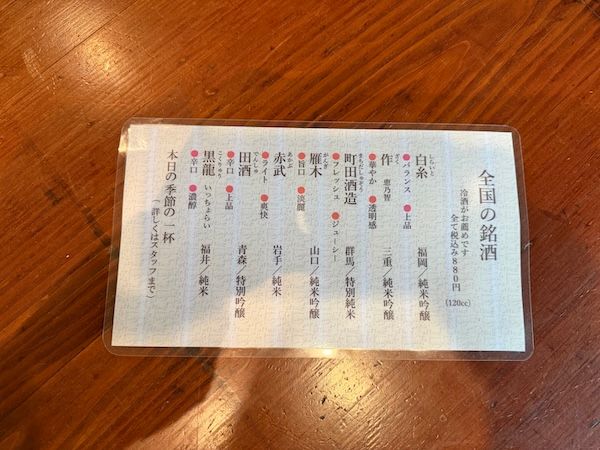 全国の銘酒
冷酒がお薦めです
全て税込み880円
(120cc)
しらいと
白糸 福岡/純米吟醸
●バランス ●上品
ざく
作 恵乃智 三重/純米吟醸
●華やか ●透明感
まちだしゅぞう
町田酒造 群馬/特別純米
●フレッシュ ●ジューシー
がんぎ
雁木 山口/純米吟醸
●旨口 ●淡麗
あかぶ
赤武 岩手/純米
●ライト ●爽快
でんしゅ
田酒 青森 特別吟醸
●辛口 ●上品
こくりゅう
黒龍 いっちょらい 福井/純米
●辛口 ●濃醇
本日の季節の一杯
(詳しくはスタッフまで)